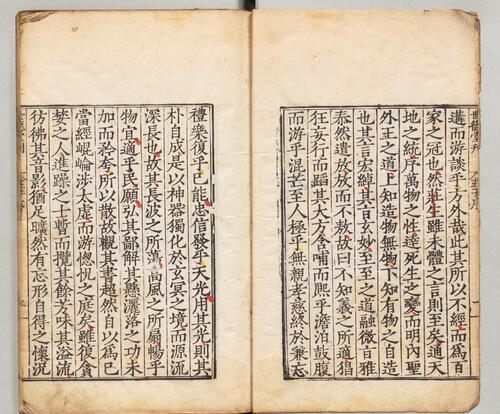 世德堂刊
遘而游談乎方外哉此其所以不經而爲百
家之冠也然莊生雖未體之言則至矣通天
地之統序萬物之性達死生之變而明内聖
外王之道上知造物無物下知有物之自造
也其言宏綽其旨玄妙至至之道融微旨雅
泰然遣放放而不敖故曰不知義之所適猖
狂妄行而蹈其大方含哺而熙乎澹泊鼓腹
而游乎混芒至人極乎無親孝慈終於兼忘
禮樂復乎已能忠信發乎天光用其光則其
朴自成是以神器獨化於玄冥之境而源流
深長也故其長波之所蕩高風之所扇暢乎
物宜適乎民願弘其鄙解其懸灑落之功未
加而矜夸所以散故觀其書超然自以爲已
當經崐崙涉太虛而游惚怳之庭矣雖復貪
婪之人進躁之士暫而攬其餘芳味其溢流
彷彿其音影猶足曠然有忘形自得之懷況